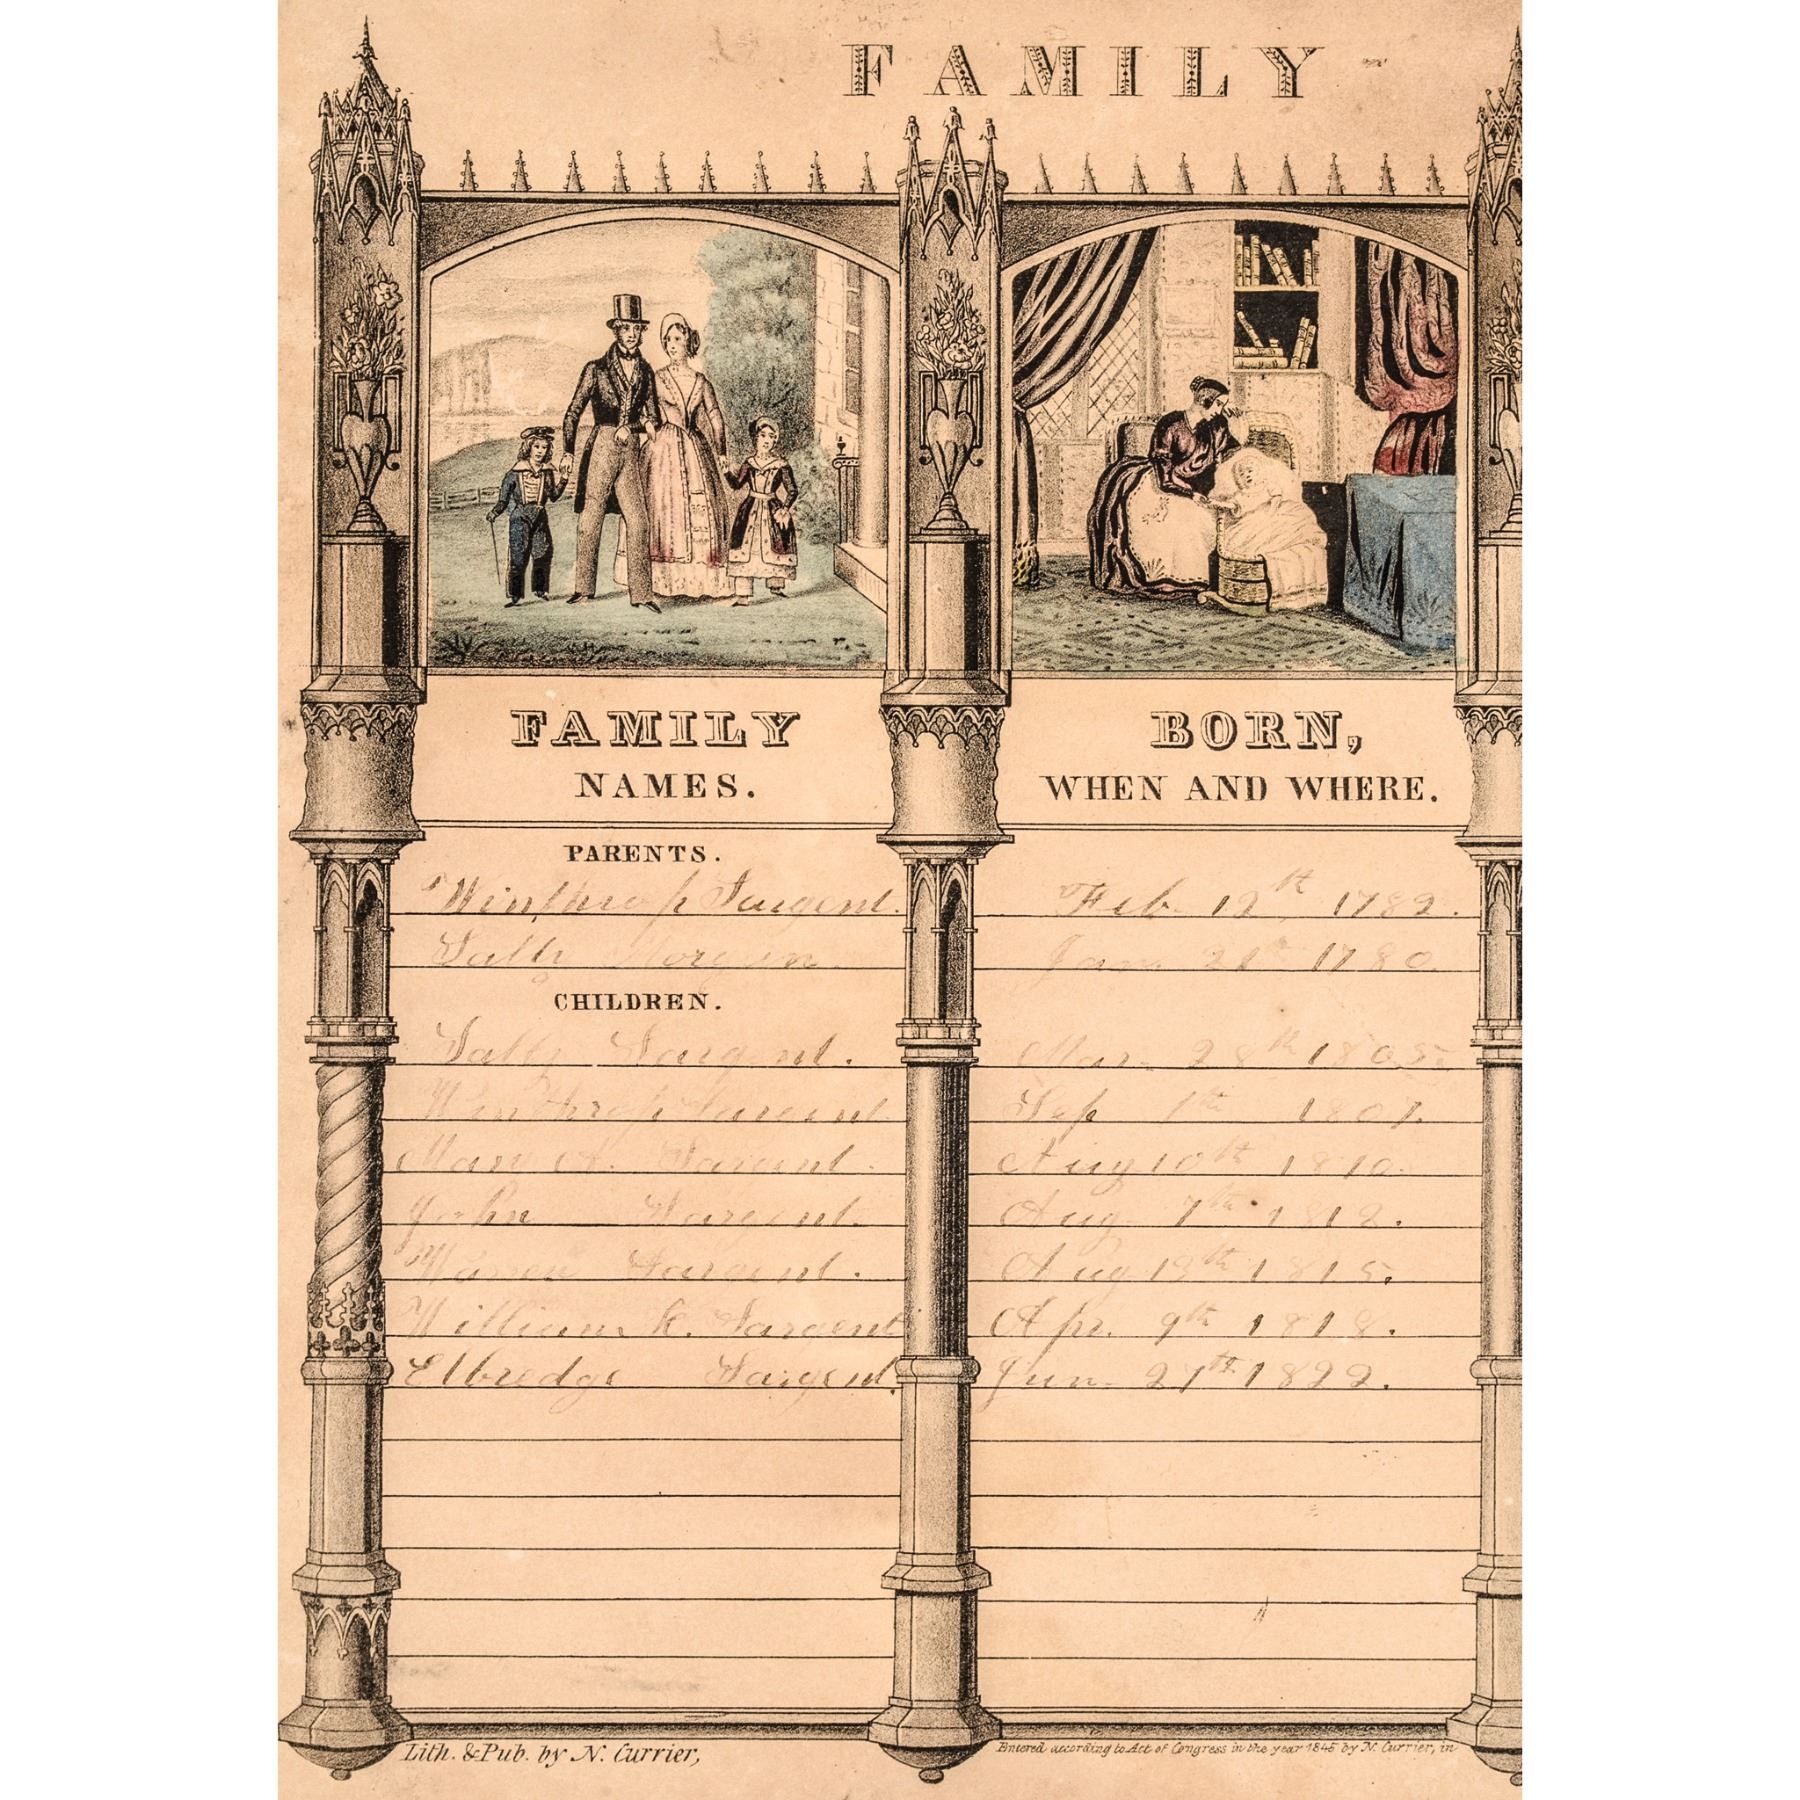 FAMILY
FAMILY
NAMES.
BORN,
WHEN AND WHERE.
PARENTS.
Winthrop Sargent. Feb. 12th 1782.
Sally Morgan Jan. 21st 1780.
CHILDREN.
Sally Sargent. Mar. 28th 1805.
Winthrop Sargent Sep 1th 1807.
Mary A. Sargent. Aug 10th 1810.
John Sargent. Aug. 7th 1812.
Warren Sargent. Aug 13th 1815.
William K. Sargent Apr. 9th 1818.
Elbredge Sargent. Jun. 27th 1822.
Lith. & Pub. by N. Currier,
Entered according to Act of Congress in the year 1845 by N. Currier, in